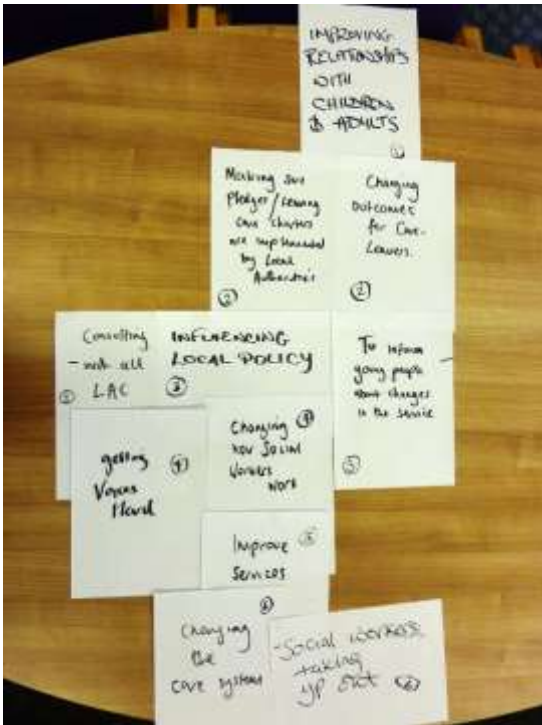 IMPROVING
RELATIONSHIPS
WITH
CHILDREN
& ADULTS
①
Making sure
Pledges/Leaving
care charters
are implemented
by Local
Authorities
②
Changing
outcomes
for Care-
Leavers.
②
Consulting
- with all
LAC
③
INFLUENCING
LOCAL POLICY
③
To inform
young people
about changes
in the service
③
getting
Voices
Heard
④
Changing ④
how Social
Workers
work
Improve ⑤
Services
⑥
Changing
the
care system
- Social workers
taking
YP out ⑥